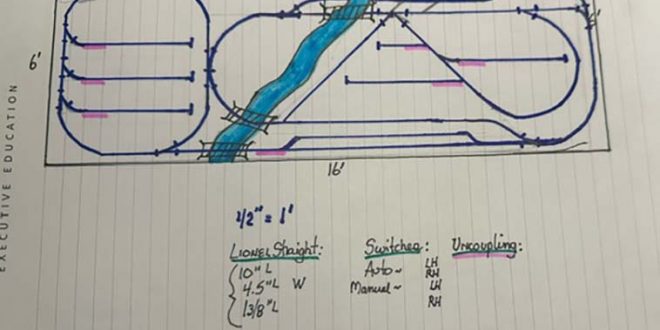 6'
6'
EXECUTIVE EDUCATION
16'
1/2" = 1'
LIONEL Straight: Switches: Uncoupling:
10" L Auto~ LH
RH
4.5" L W Manual~ LH
1 3/8" L RH